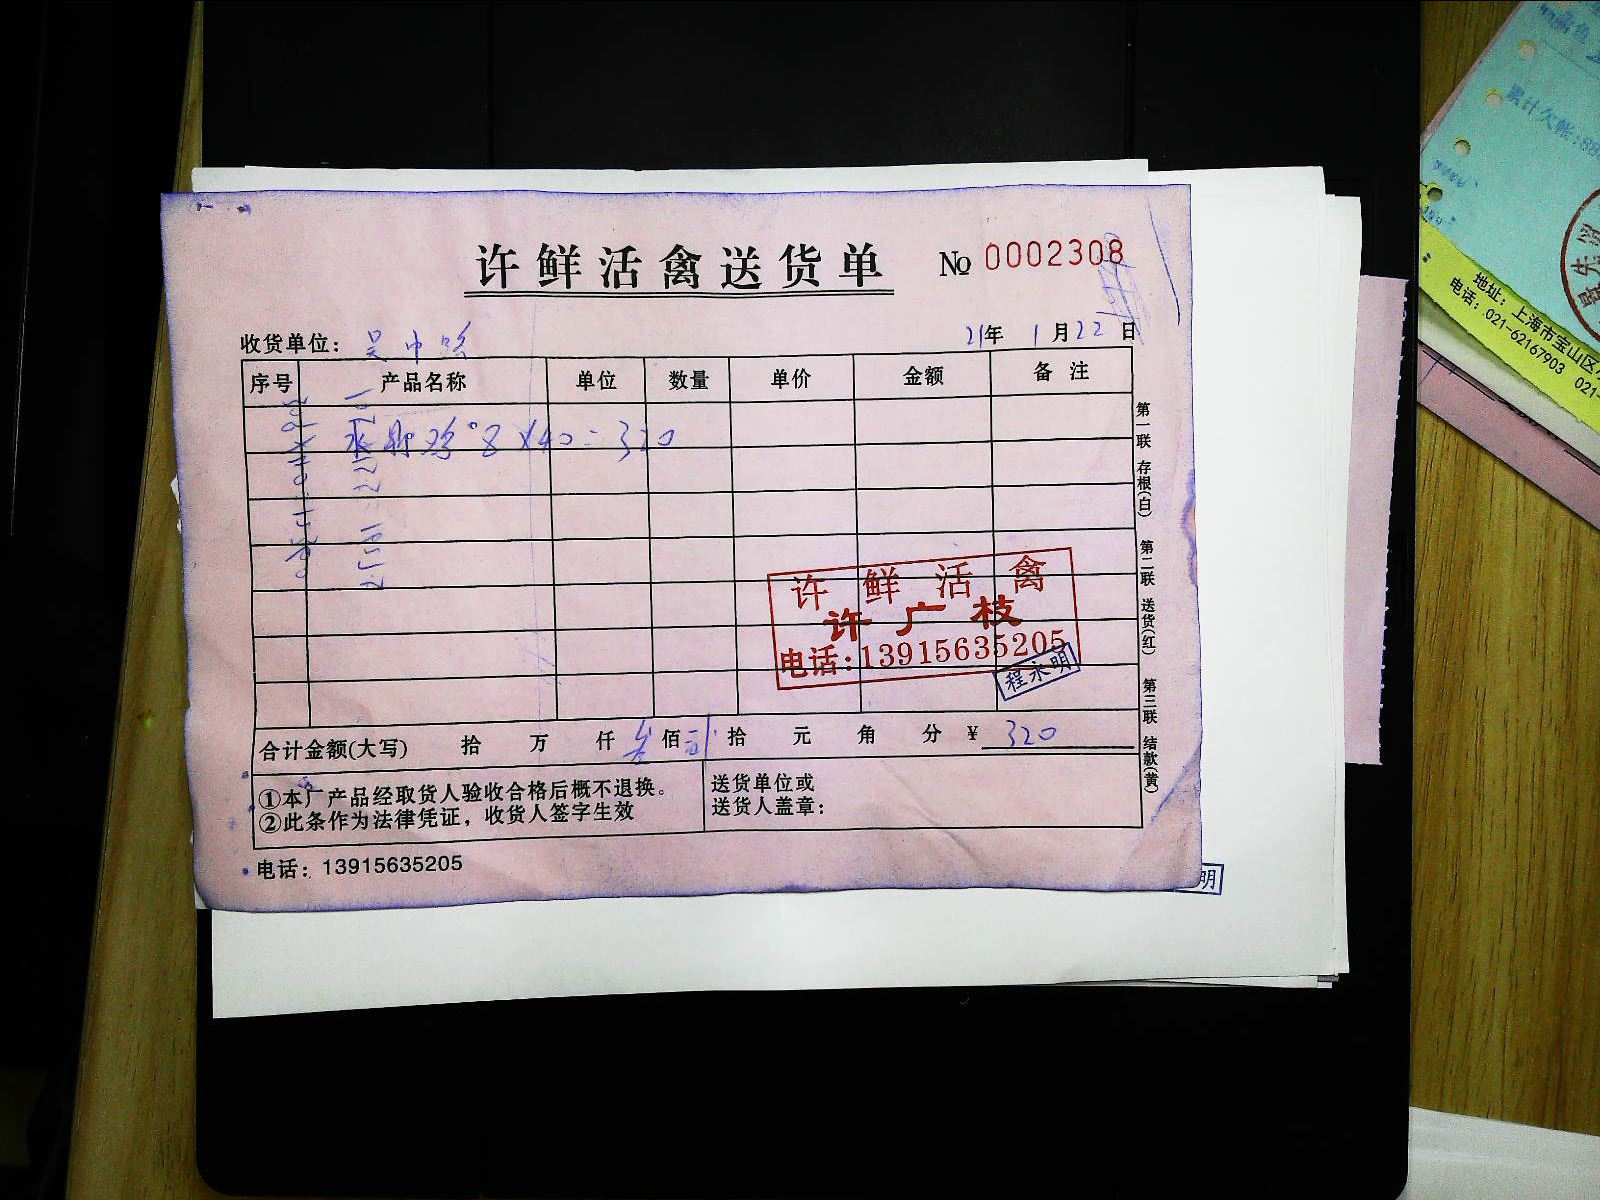 许鲜活禽送货单 № 0002308
收货单位：吴中路 21年 1月22日
序号 产品名称 单位 数量 单价 金额 备注
鸡 8×40=320
许鲜活禽
许广枝
电话:13915635205
程永明
合计金额(大写) 拾 万 仟 叁佰 贰拾 元 角 分 ¥ 320
①本厂产品经取货人验收合格后概不退换。
②此条作为法律凭证，收货人签字生效
送货单位或
送货人盖章：
电话：13915635205
第一联 存根(白) 第二联 送货(红) 第三联 结款(黄)
明
累计欠帐:
地址：上海市宝山区
电话：021-62167903 021-